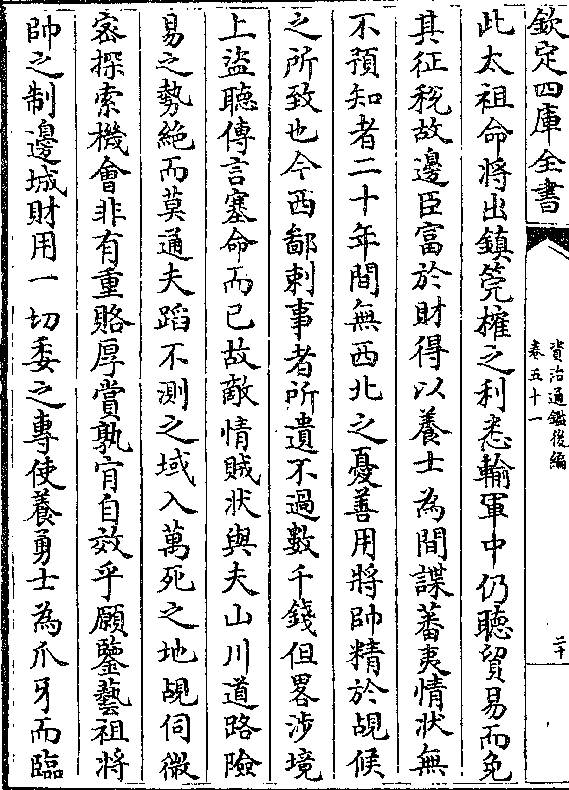 欽定四庫全書
資治通鑑後編
卷五十一
二十
此太祖命將出鎮筦榷之利悉輸軍中仍聽貿易而免
其征稅故邊臣富於財得以養士為間諜蕃夷情狀無
不預知者二十年間無西北之憂善用將帥精於覘候
之所致也今西鄙刺事者所遺不過數千錢但畧涉境
上盜聽傳言塞命而已故敵情賊狀與夫山川道路險
易之勢絶而莫通夫蹈不測之域入萬死之地覘伺微
密探索機會非有重賂厚賞孰肎自效乎願鑒藝祖將
帥之制邊城財用一切委之專使養勇士為爪牙而臨